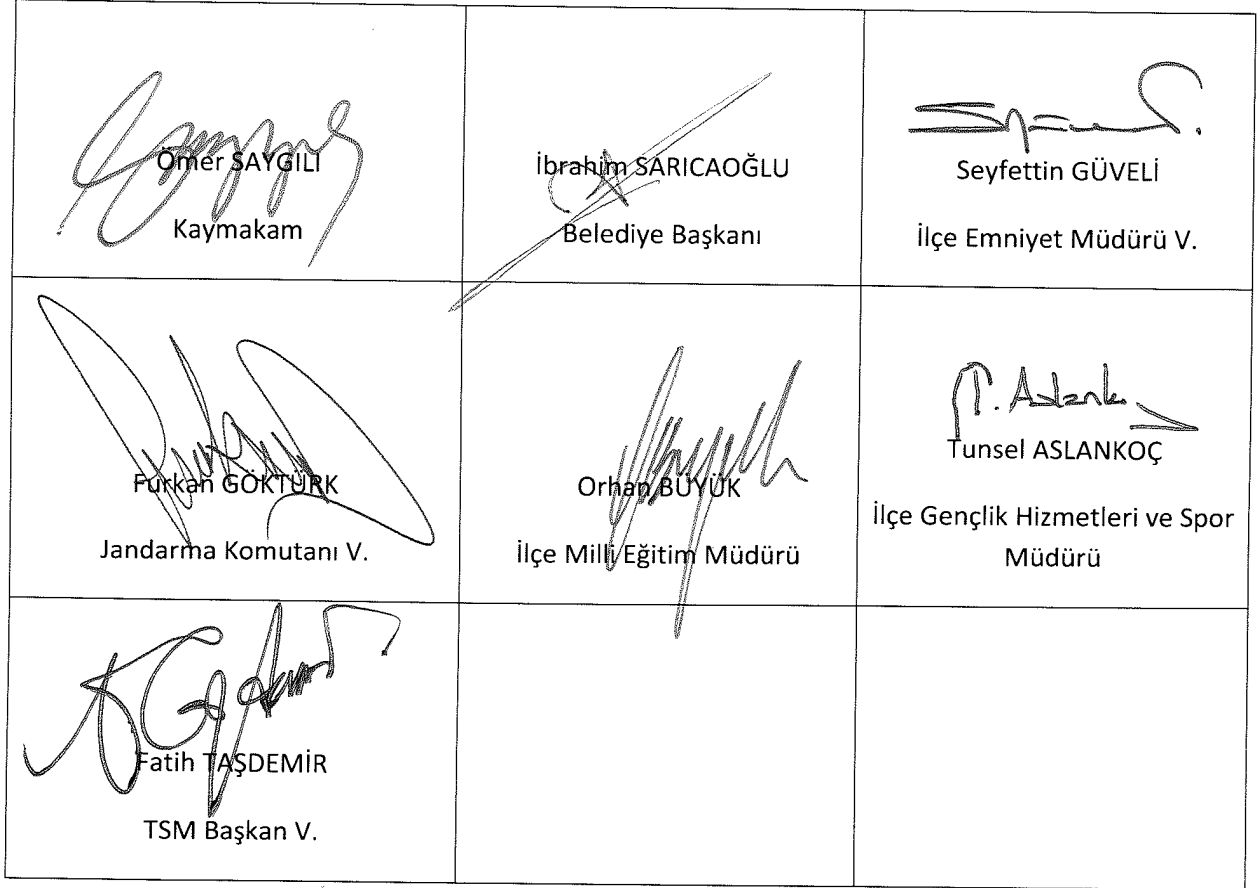 Ömer SAYGILI
Kaymakam
İbrahim SARICAOĞLU
Belediye Başkanı
Seyfettin GÜVELİ
İlçe Emniyet Müdürü V.
Furkan GÖKTÜRK
Jandarma Komutanı V.
Orhan BÜYÜK
İlçe Milli Eğitim Müdürü
T. Aslanko
Tunsel ASLANKOÇ
İlçe Gençlik Hizmetleri ve Spor
Müdürü
Fatih TAŞDEMİR
TSM Başkan V.